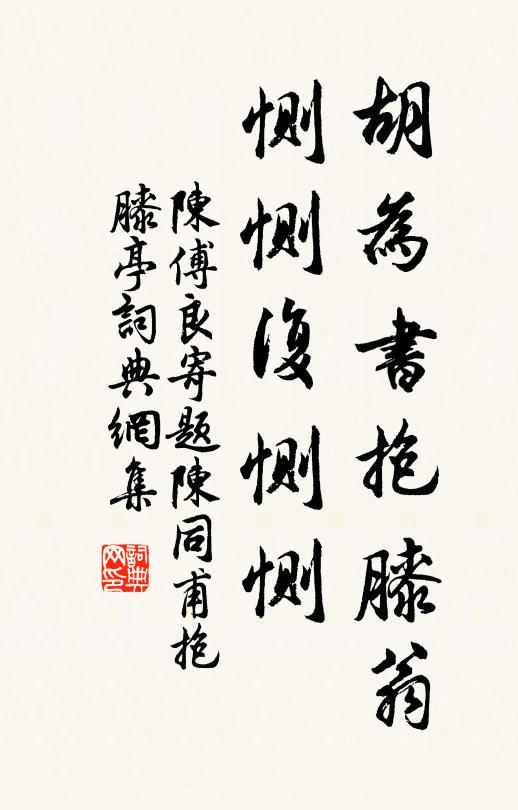 胡為書抱膝翁
惻惻復惻惻
陳傅良寄題陳同甫抱
膝亭詞典網集
詞典
网印